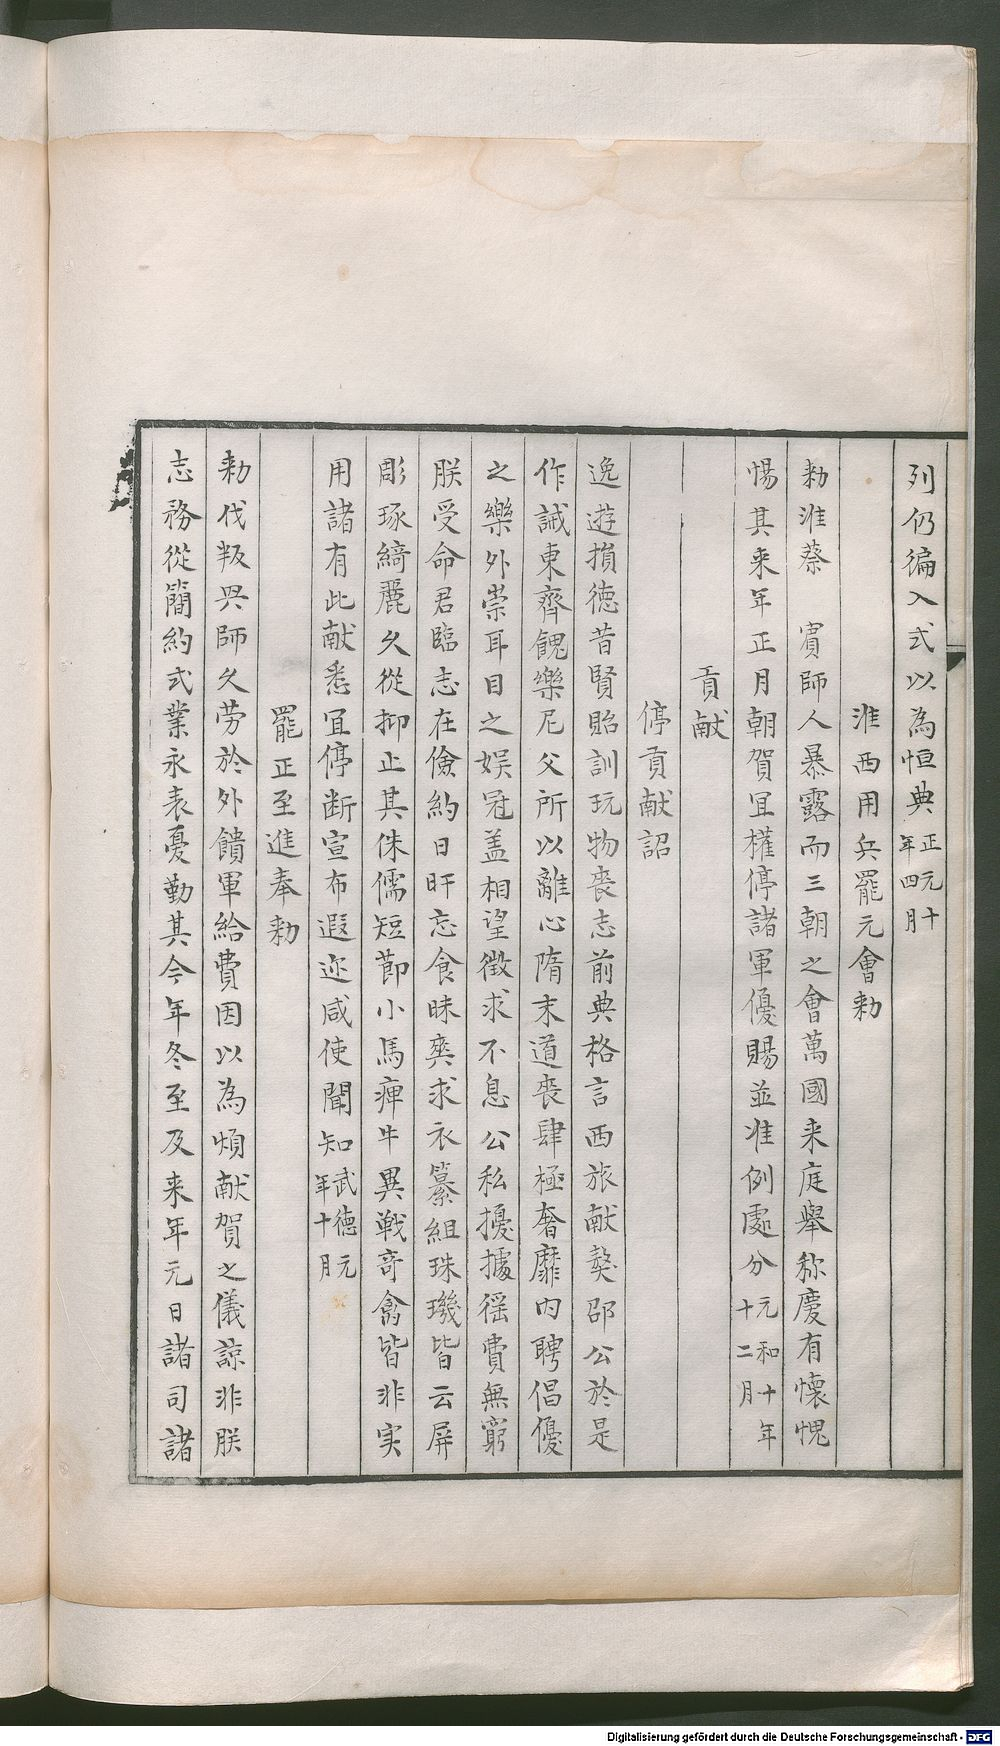 列仍徧入式以為恒典正元十年四月
淮西用兵罷元會勑
勑淮蔡賔師人暴露而三朝之會萬國来庭舉称慶有懐愧
惕其来年正月朝賀冝權停諸軍優賜並准例處分元和十年十二月
貢献
停貢献詔
逸遊損德昔賢貽訓玩物喪志前典格言西旅献獒邵公於是
作誡東齊餽樂尼父所以離心隋末道喪肆極奢靡内聘倡優
之樂外崇耳目之娱冠盖相望徵求不息公私擾攘徭費無窮
朕受命君臨志在儉約日旰忘食昧爽求衣纂組珠璣皆云屏
彫琢綺麗久從抑止其侏儒短莭小馬痺牛異戦奇禽皆非实
用諸有此献悉冝停断宣布遐迩咸使聞知武德元年十月
罷正至進奉勑
勑伐叛興師久劳於外饋軍給費因以為煩献賀之儀諒非朕
志務從簡約式業永表憂勤其今年冬至及来年元日諸司諸
Digitalisierung gefördert durch die Deutsche Forschungsgemeinschaft - DFG